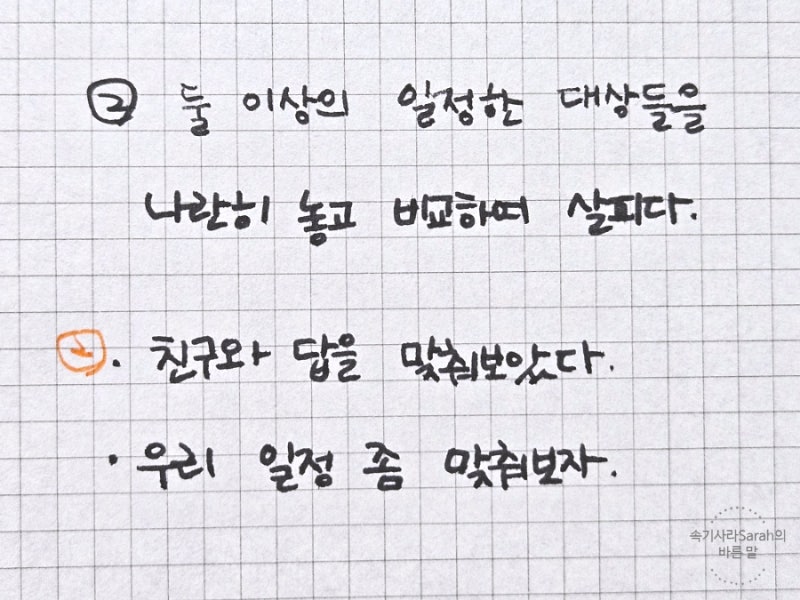 ② 둘 이상의 일정한 대상들을
나란히 놓고 비교하며 살피다.
↓. 친구와 답을 맞춰보았다.
· 우리 일정 좀 맞춰보자.
속기사라Sarah의
바른 말